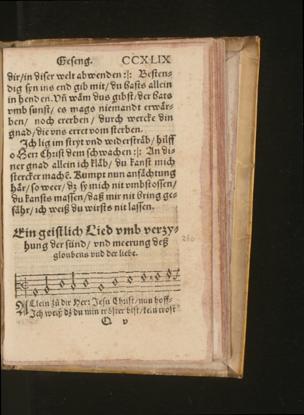 Geseng. CCXLIX
dir/in diser welt abwenden :|: Besten-
dig syn ins end gib mir/ du hasts allein
in henden. Vñ wäm dus gibst/ der hats
vmb sunst/ es mags niemandt erwär-
ben/ noch ererben/ durch wercke din
gnad/ die vns erret vom sterben.
Ich lig im stryt vnd widersträb/ hilff
o Herr Christ dem schwachen :|: An di-
ner gnad allein ich kläb/ du kanst mich
stercker machē. Kumpt nun anfächtung
här/ so weer/ dz sy mich nit vmbstossen/
du kansts massen/ daß mir nit bring ge-
fähr/ ich weiß du wirsts nit lassen.
Ein geistlich Lied vmb verzy-
hung der sünd/ vnd meerung deß
gloubens vnd der liebe.
ALlein zů dir Herr Jesu Christ/ nun hoff-
Ich weiß dz du min tröster bist/ kein trost
Q v